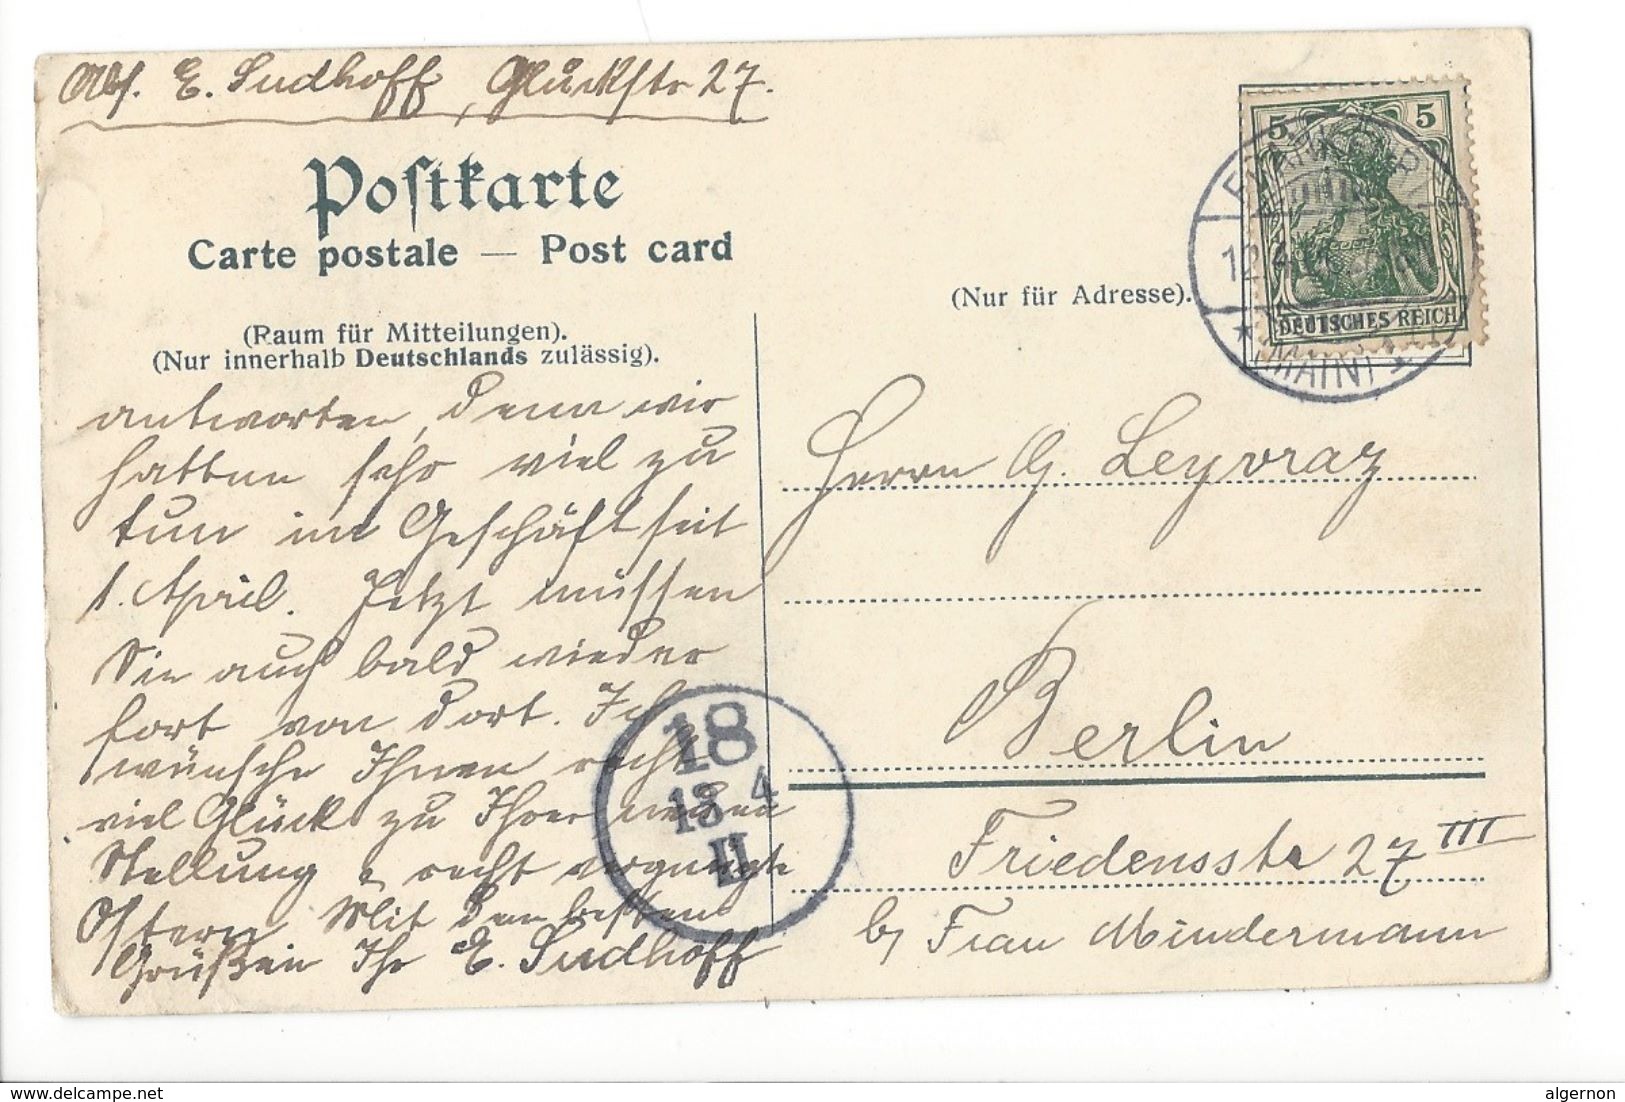 Abs. E. Sudhoff, Glückstr 27.
Postkarte
Carte postale — Post card
(Raum für Mitteilungen).
(Nur innerhalb Deutschlands zulässig).
(Nur für Adresse).
5 5
DEUTSCHES REICH
FRANKFURT
12.4.
* (MAIN) 1
antworten, denn wir
hatten sehr viel zu
tun im Geschäft seit
1. April. Jetzt müssen
Sie auch bald wieder
fort von dort. Ich
wünsche Ihnen recht
viel Glück zu Ihrer neuen
Stellung & recht vergnügte
Ostern. Mit den besten
Grüßen Ihr E. Sudhoff
18
13 4
II
Herrn G. Leyvraz
Berlin
Friedensstr 27 III
by Frau Mindermann
delcampe.net
algernon